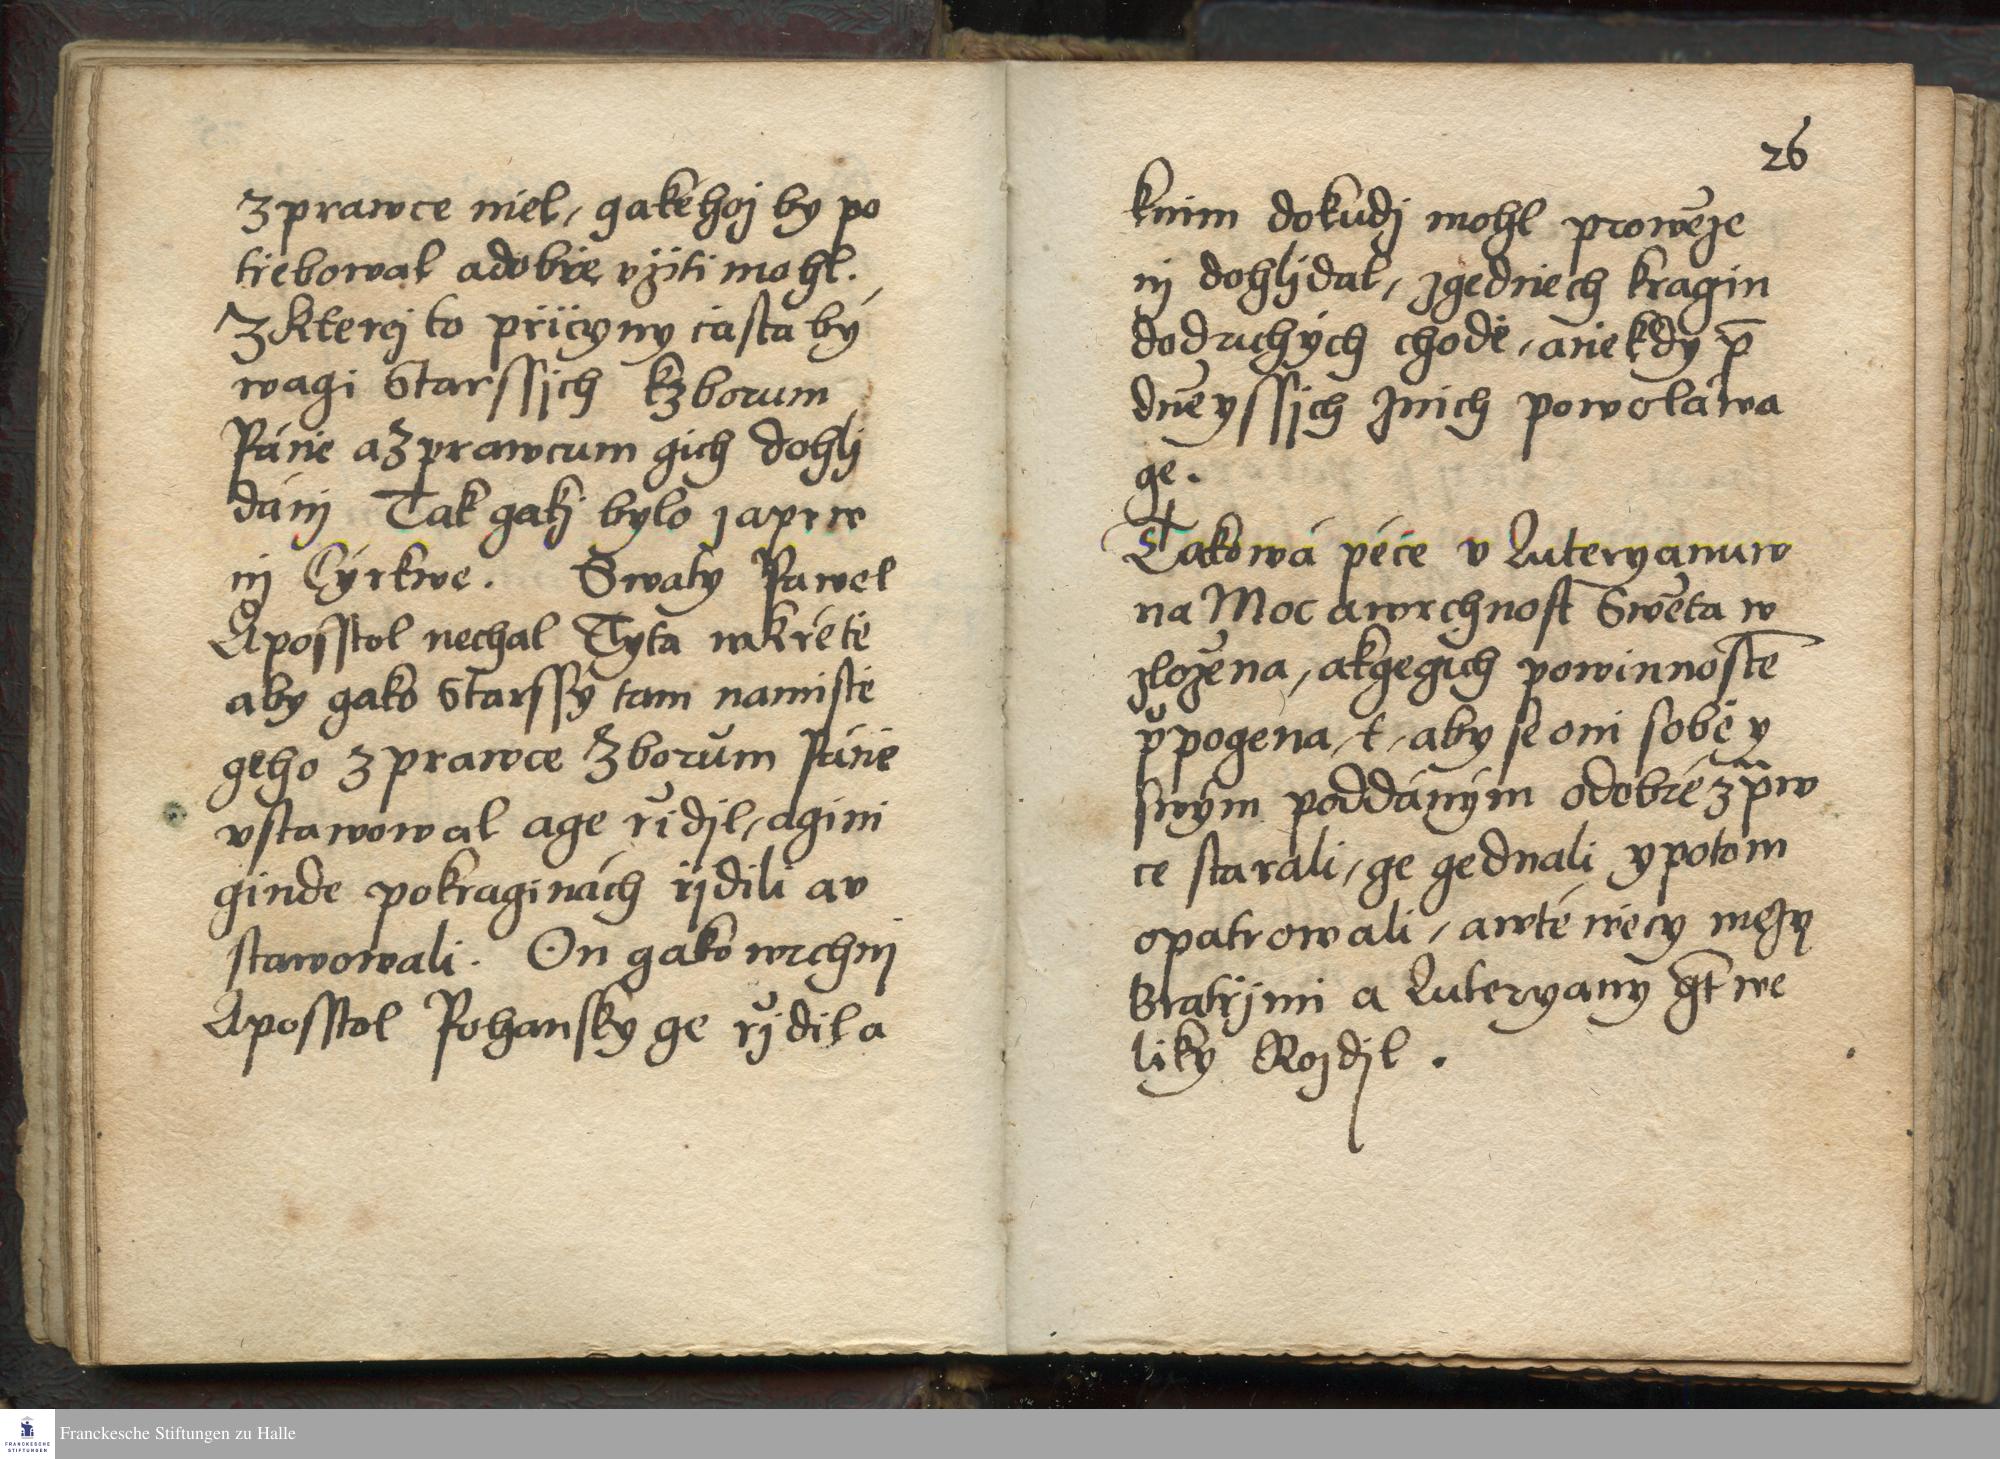 zprawce niel, gakéhoj by po
tiebowal adobře vžiti mohl.
Zkterej to přicyny ċasta bý
wagi Starssich kzborum
Páně azprawcum gich dohlj
dánj Tak gakž bylo zaprw
nj Cýrkwe. Swaty Pawel
Aposstol nechal Tyta wkrétě
aby gako Starssý tam namistě
geho zprawce Zborům Páně
vstawowal age řidjl, agini
ginde pokraginách řjdili av
stawowali. On gako wrchnj
Aposstol Pohansky ge řjdil a
26
knim dokudž mohl prowēze
nj dohljdal, zgednech kragin
dodruhých chodě, aněkdy p̄
dnēyssjch Jnich powoláwa
ge.
Taková péċe v Luteryanuw
na Moc awrchnost Swēta w
zložēna, akgegich powinnostē
pŕipogena, t, aby se oni sobě y
swým poddáným odobré zp̄w
ce starali, ge gednali ypotom
opatrowali, awté wēcy mezy
Bratřjmi a Luteryany gt̄ we
liky Rozdjl.
Franckesche Stiftungen zu Halle
FRANCKESCHE
STIFTUNGEN